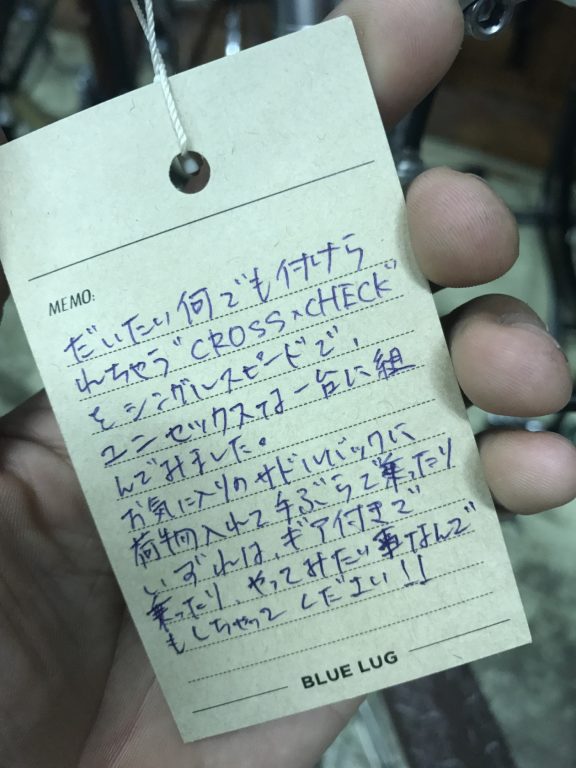 MEMO:
だいたい何でも付けら
れちゃう"CROSS×CHECK"
をシングルスピードで、
ユニセックスな一台に組
んでみました。
お気に入りのサドルバックに
荷物入れて手ぶらで乗ったり
いずれは、ギア付きで
乗ったり、やってみたい事なんで
もしちゃってください!!
BLUE LUG